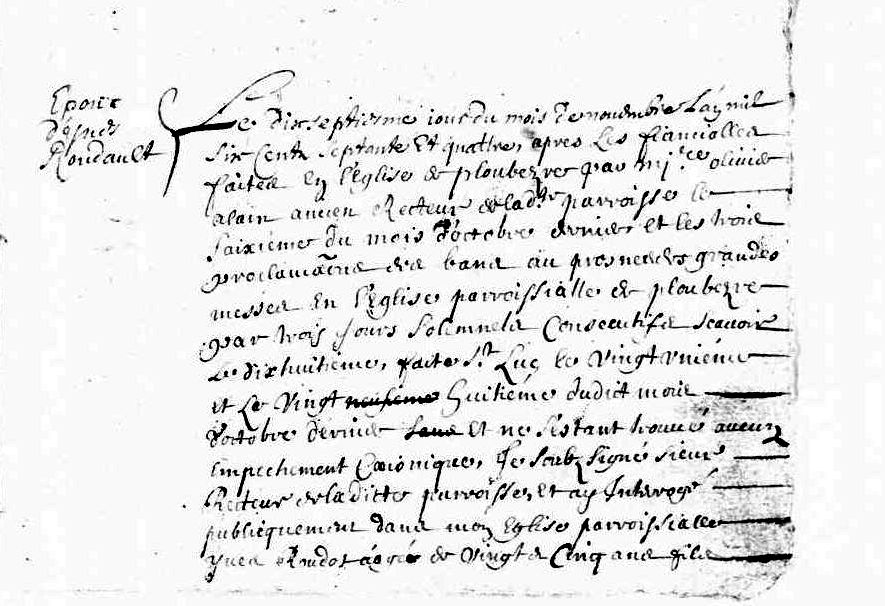 Epouse
d'yves
Roudault
Le dixseptiesme iour du mois de novembre L'an mil
six Cents septante Et quattre, apres Les fiancialles
faites En l'Eglise de ploubezre par olivier
alain ancien Recteur de lad.te parroisse le
saixieme du mois d'octobre dernier et les trois
proclama.ons des bans au prosne des grandes
messes En l'Eglise parroissialle de ploubezre
par trois jours solemnels Consecutifs scavoir
Le dixhuitieme, faite St Luc le vingt unieme
et Le vingt neufieme huitieme dudict mois
d'octobre dernier sans Et ne s'estant trouué aucun
Empechement Canonique, Je soubz signé sieur
Recteur de laditte parroisse, Et ay Interrogé
publicquement dans mon Eglise parroissialle
yves aagée de vingt & Cinq ans fils